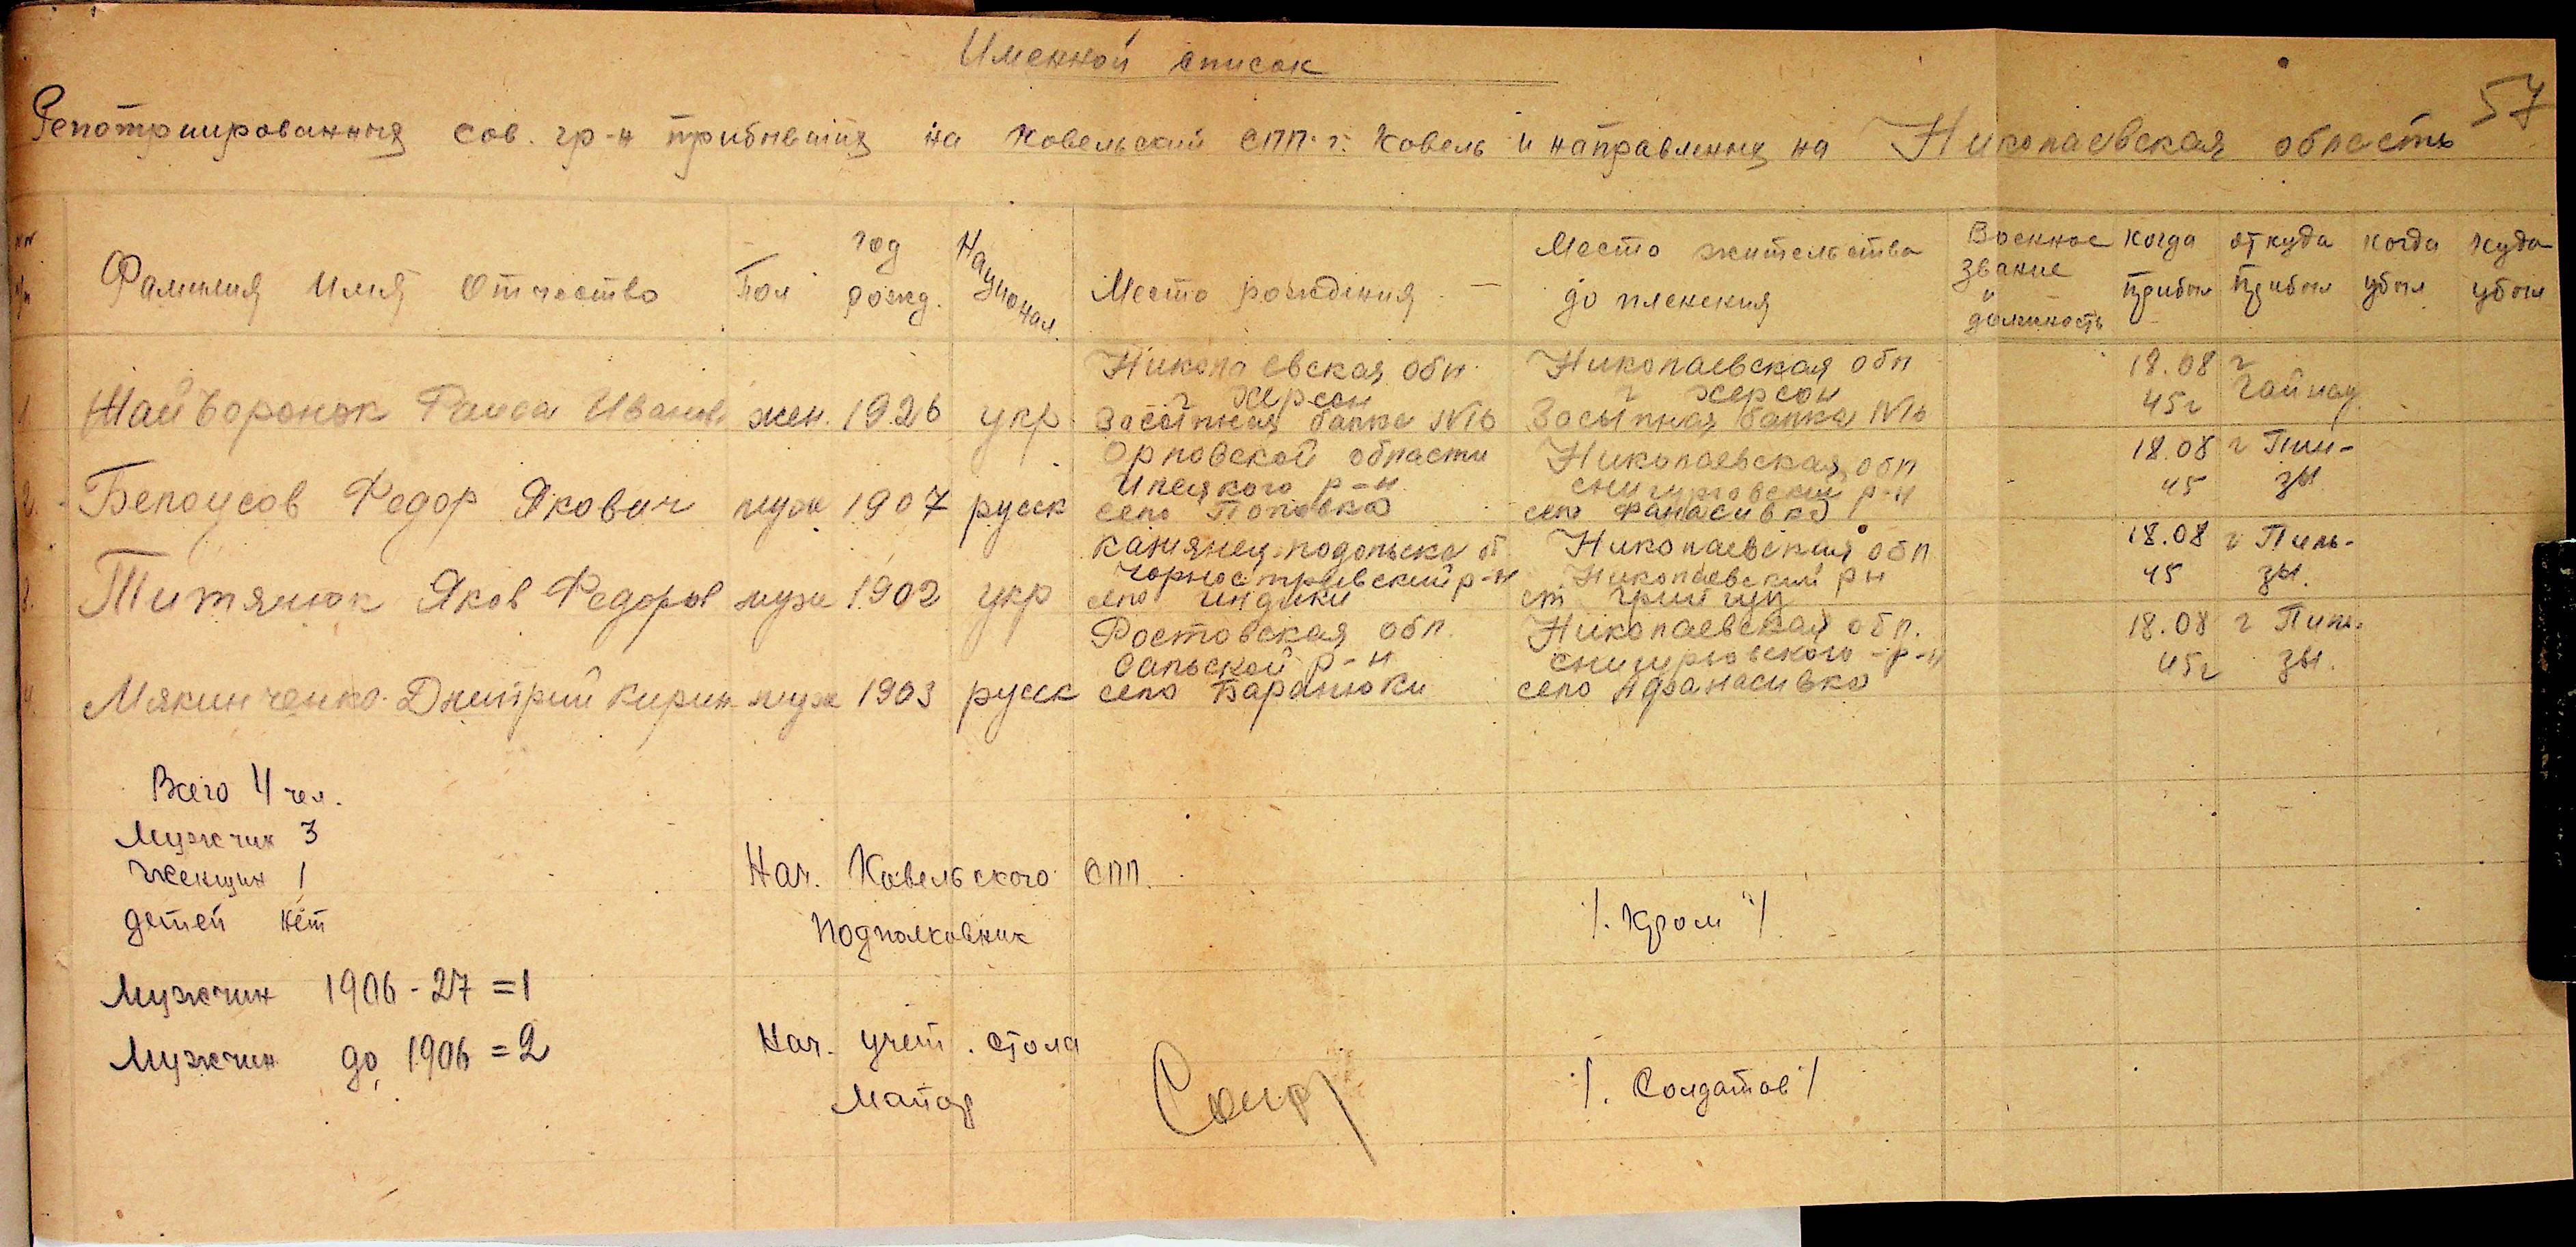 Именной список
57
Репотриированных сов. гр-н прибывших на Ковельский СПП. г. Ковель и направленных на Николаевская область
№№ п/п Фамилия Имя Отчество Пол год рожд. Национал. Место рождения Место жительства до пленения Военное звание и должность когда прибыл откуда прибыл когда убыл куда убыл
1 Жайворонок Раиса Иванов. жен. 1926 укр. Николаевская обл. г Херсон Засыпная балка №16 Николаевская обл г Херсон Засыпная балка №16 18.08 45г г
2. Белоусов Федор Якович муж 1907 русск Орловской области село Поповка Николаевская обл снигуровский р-н село Фанасивка 18.08 45 г Пил-зы
3. Титянюк Яков Федоров муж 1902 укр Камянец-подольска об Чорностривский р-н село индики Николаевская обл Николаевский рн ст 18.08 45 г Пиль-зы.
4. Мякинченко Дмитрий Кирил муж 1903 русск Ростовская обл. Сальской р-н село Баранюки Николаевская обл. снигуровского-р-н село Афанасивка 18.08 45г г Пил-зы.
Всего 4 чел.
Мужчин 3
Женщин 1
детей нет
Мужчин 1906-27 = 1
Мужчин до 1906 = 2
Нач. Ковельского СПП.
Подполковник /. Кром /
Нач. учет. стола
Майор /. Солдатов /